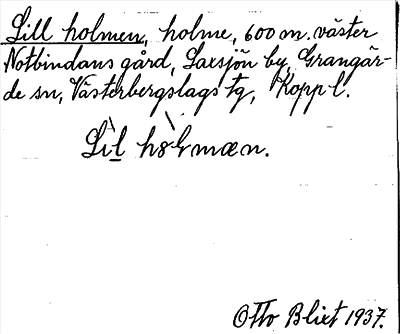 Lill holmen, holme, 600 m. väster
Notbindans gård, Laxsjön by, Grangär-
de sn, Västerbergslags tg, Kopp l.
Lìl hòlmæn.
Otto Blixt 1937.